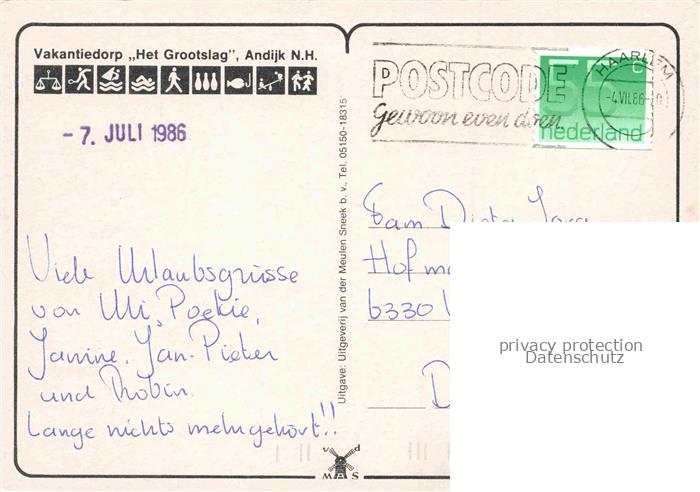 Vakantiedorp „Het Grootslag", Andijk N.H.
- 7. JULI 1986
Viele Urlaubsgrüsse
von Uli, Poekie,
Janine, Jan-Pieter
und Robin.
Lange nichts mehr gehört!!
Uitgave: Uitgeverij van der Meulen Sneek b. v., Tel. 05150-18315
v d
MAS
POSTCODE
Gewoon even doen
HAARLEM
-4.VII.86-
55 c
nederland
Fam. Dieter
Hofm
6330
D
privacy protection
Datenschutz